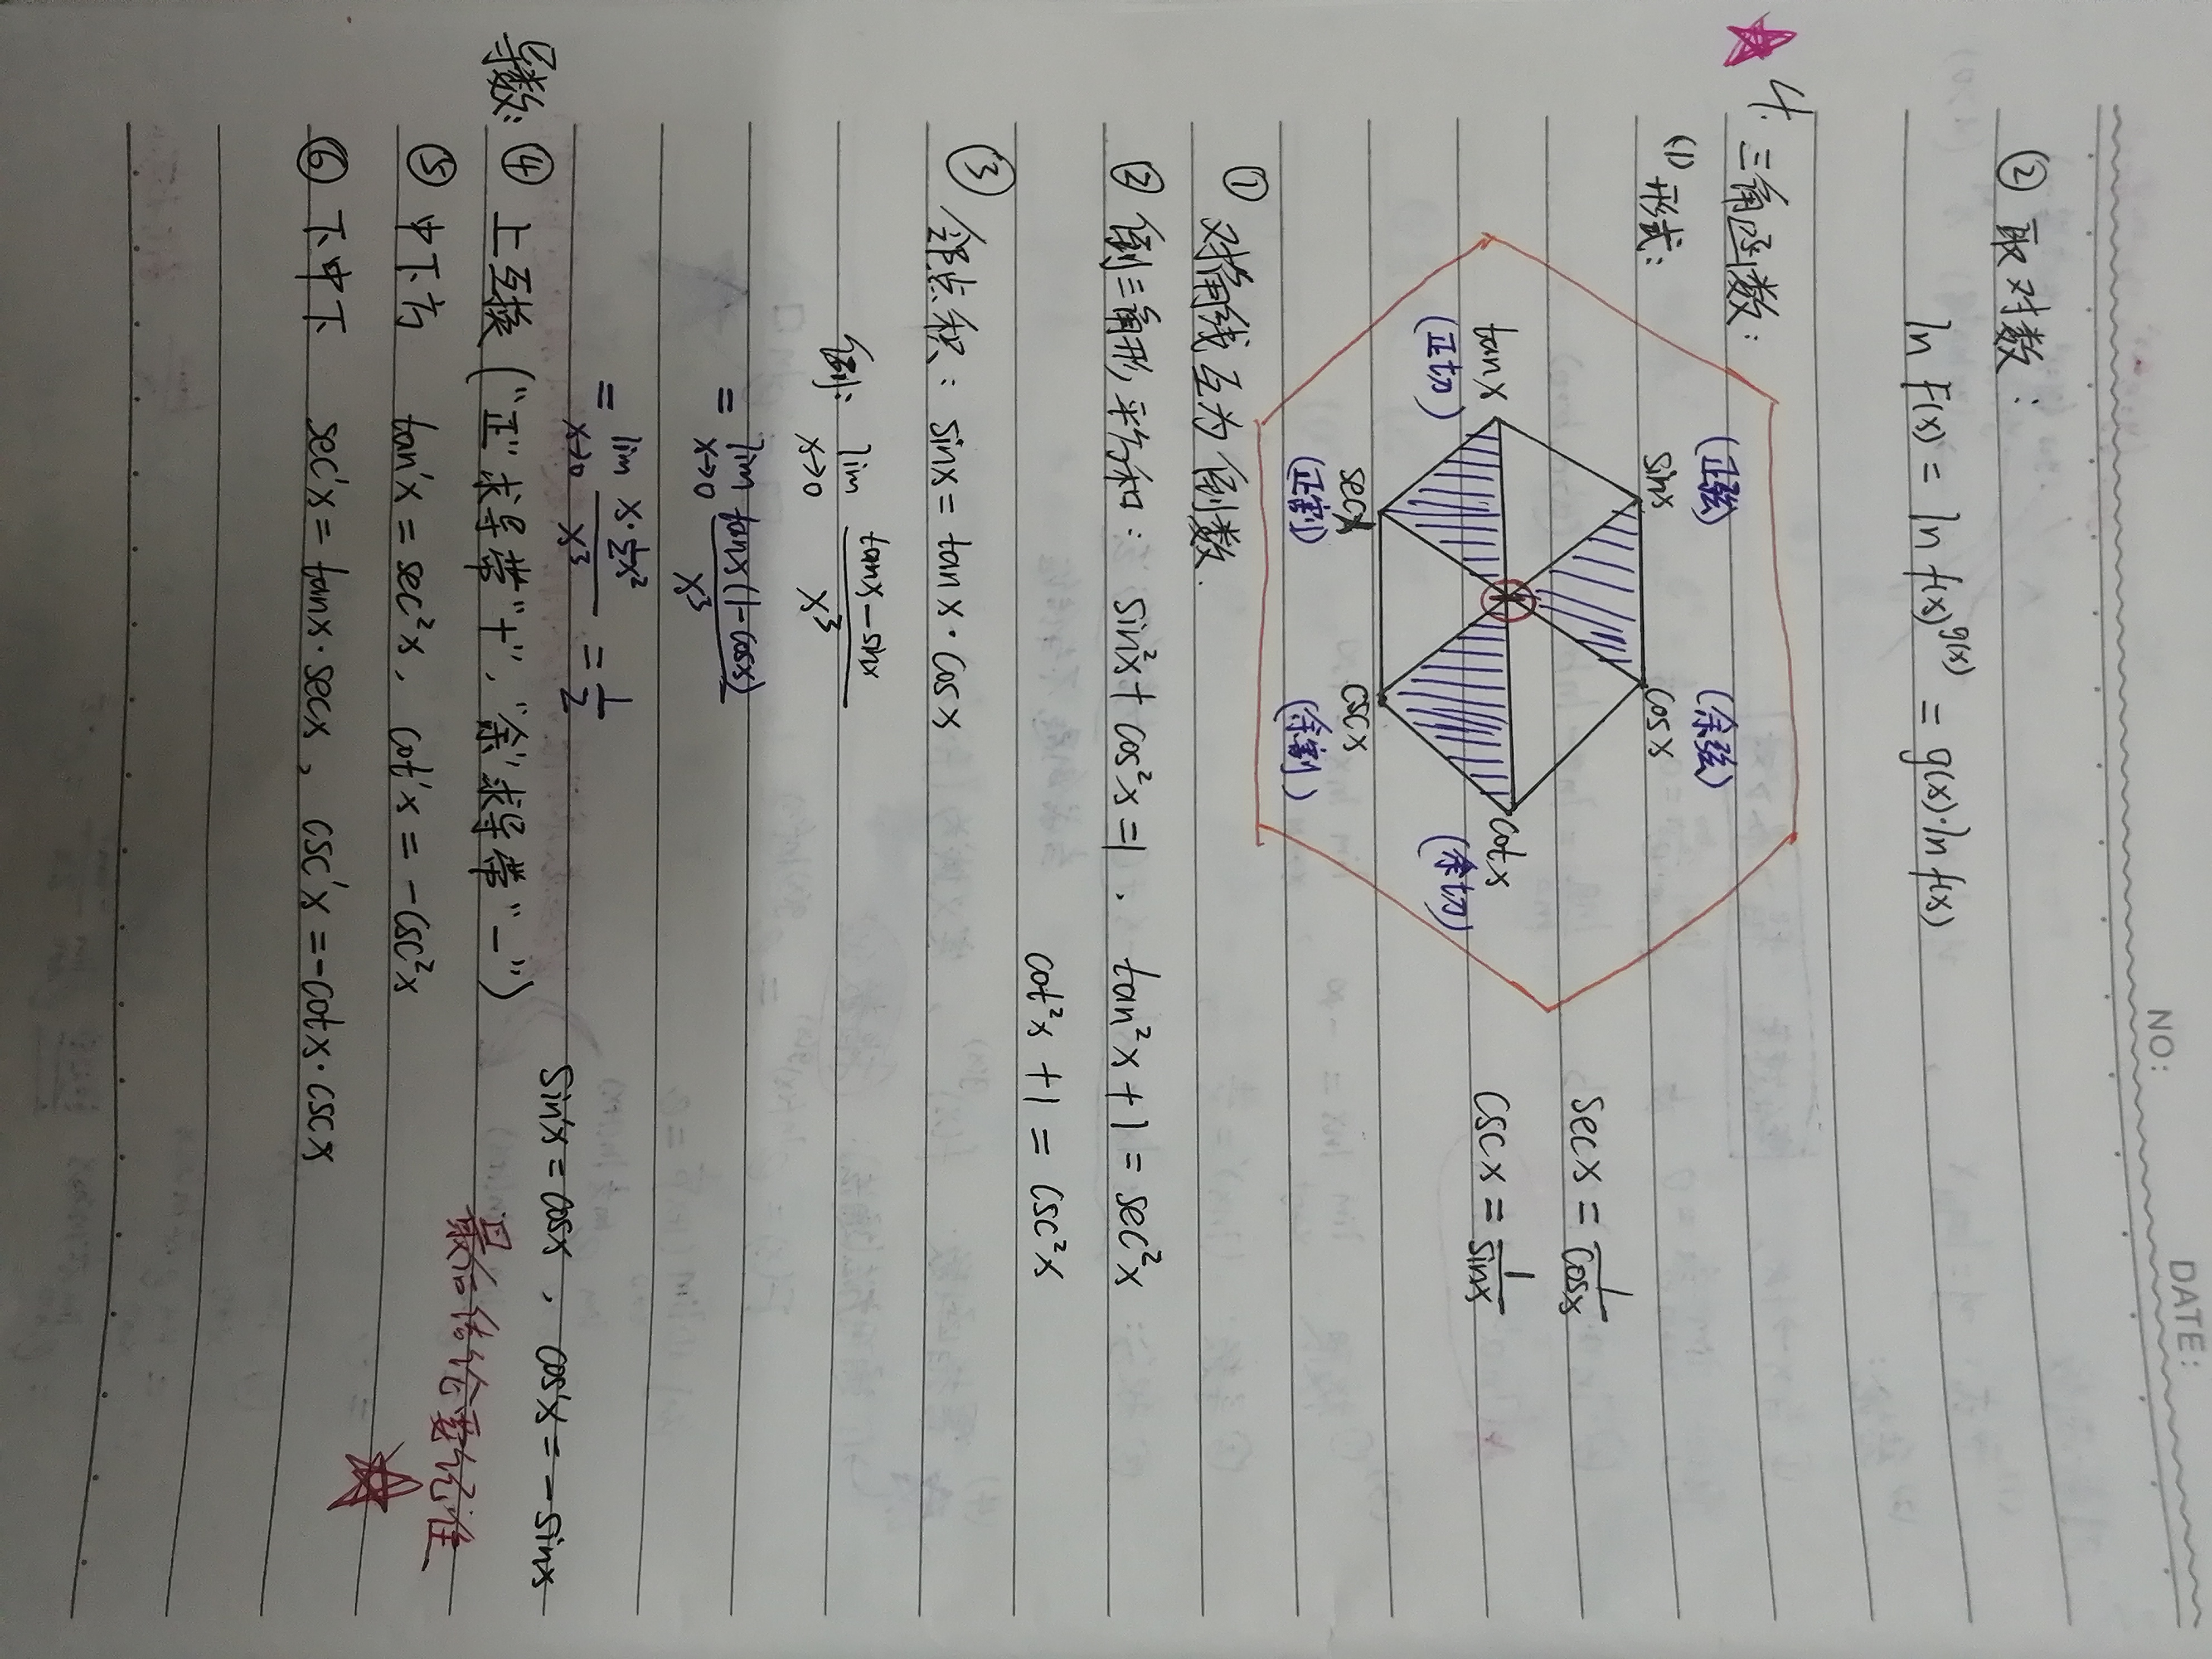 NO:
DATE:
② 取对数:
ln F(x) = ln f(x)^g(x) = g(x)·ln f(x)
4. 三角函数:
(1) 形式:
(正弦) (余弦)
sinx cosx
tanx cotx
(正切) (余切)
secx cscx
(正割) (余割)
secx = 1/cosx
cscx = 1/sinx
① 对角线互为倒数.
② 倒三角形平方和: sin²x + cos²x = 1, tan²x + 1 = sec²x
cot²x + 1 = csc²x
③ 邻点积: sinx = tanx·cosx
例: lim x→0 (tanx - sinx)/x³
= lim x→0 tanx(1-cosx)/x³
= lim x→0 x·½x²/x³ = 1/2
导数: ④ 上互换 ("正"求导带"+", "余"求导带"-")
sin'x = cosx, cos'x = -sinx
⑤ 中下方 tan'x = sec²x, cot'x = -csc²x
⑥ 下中下 sec'x = tanx·secx, csc'x = -cotx·cscx
最后结论要记准